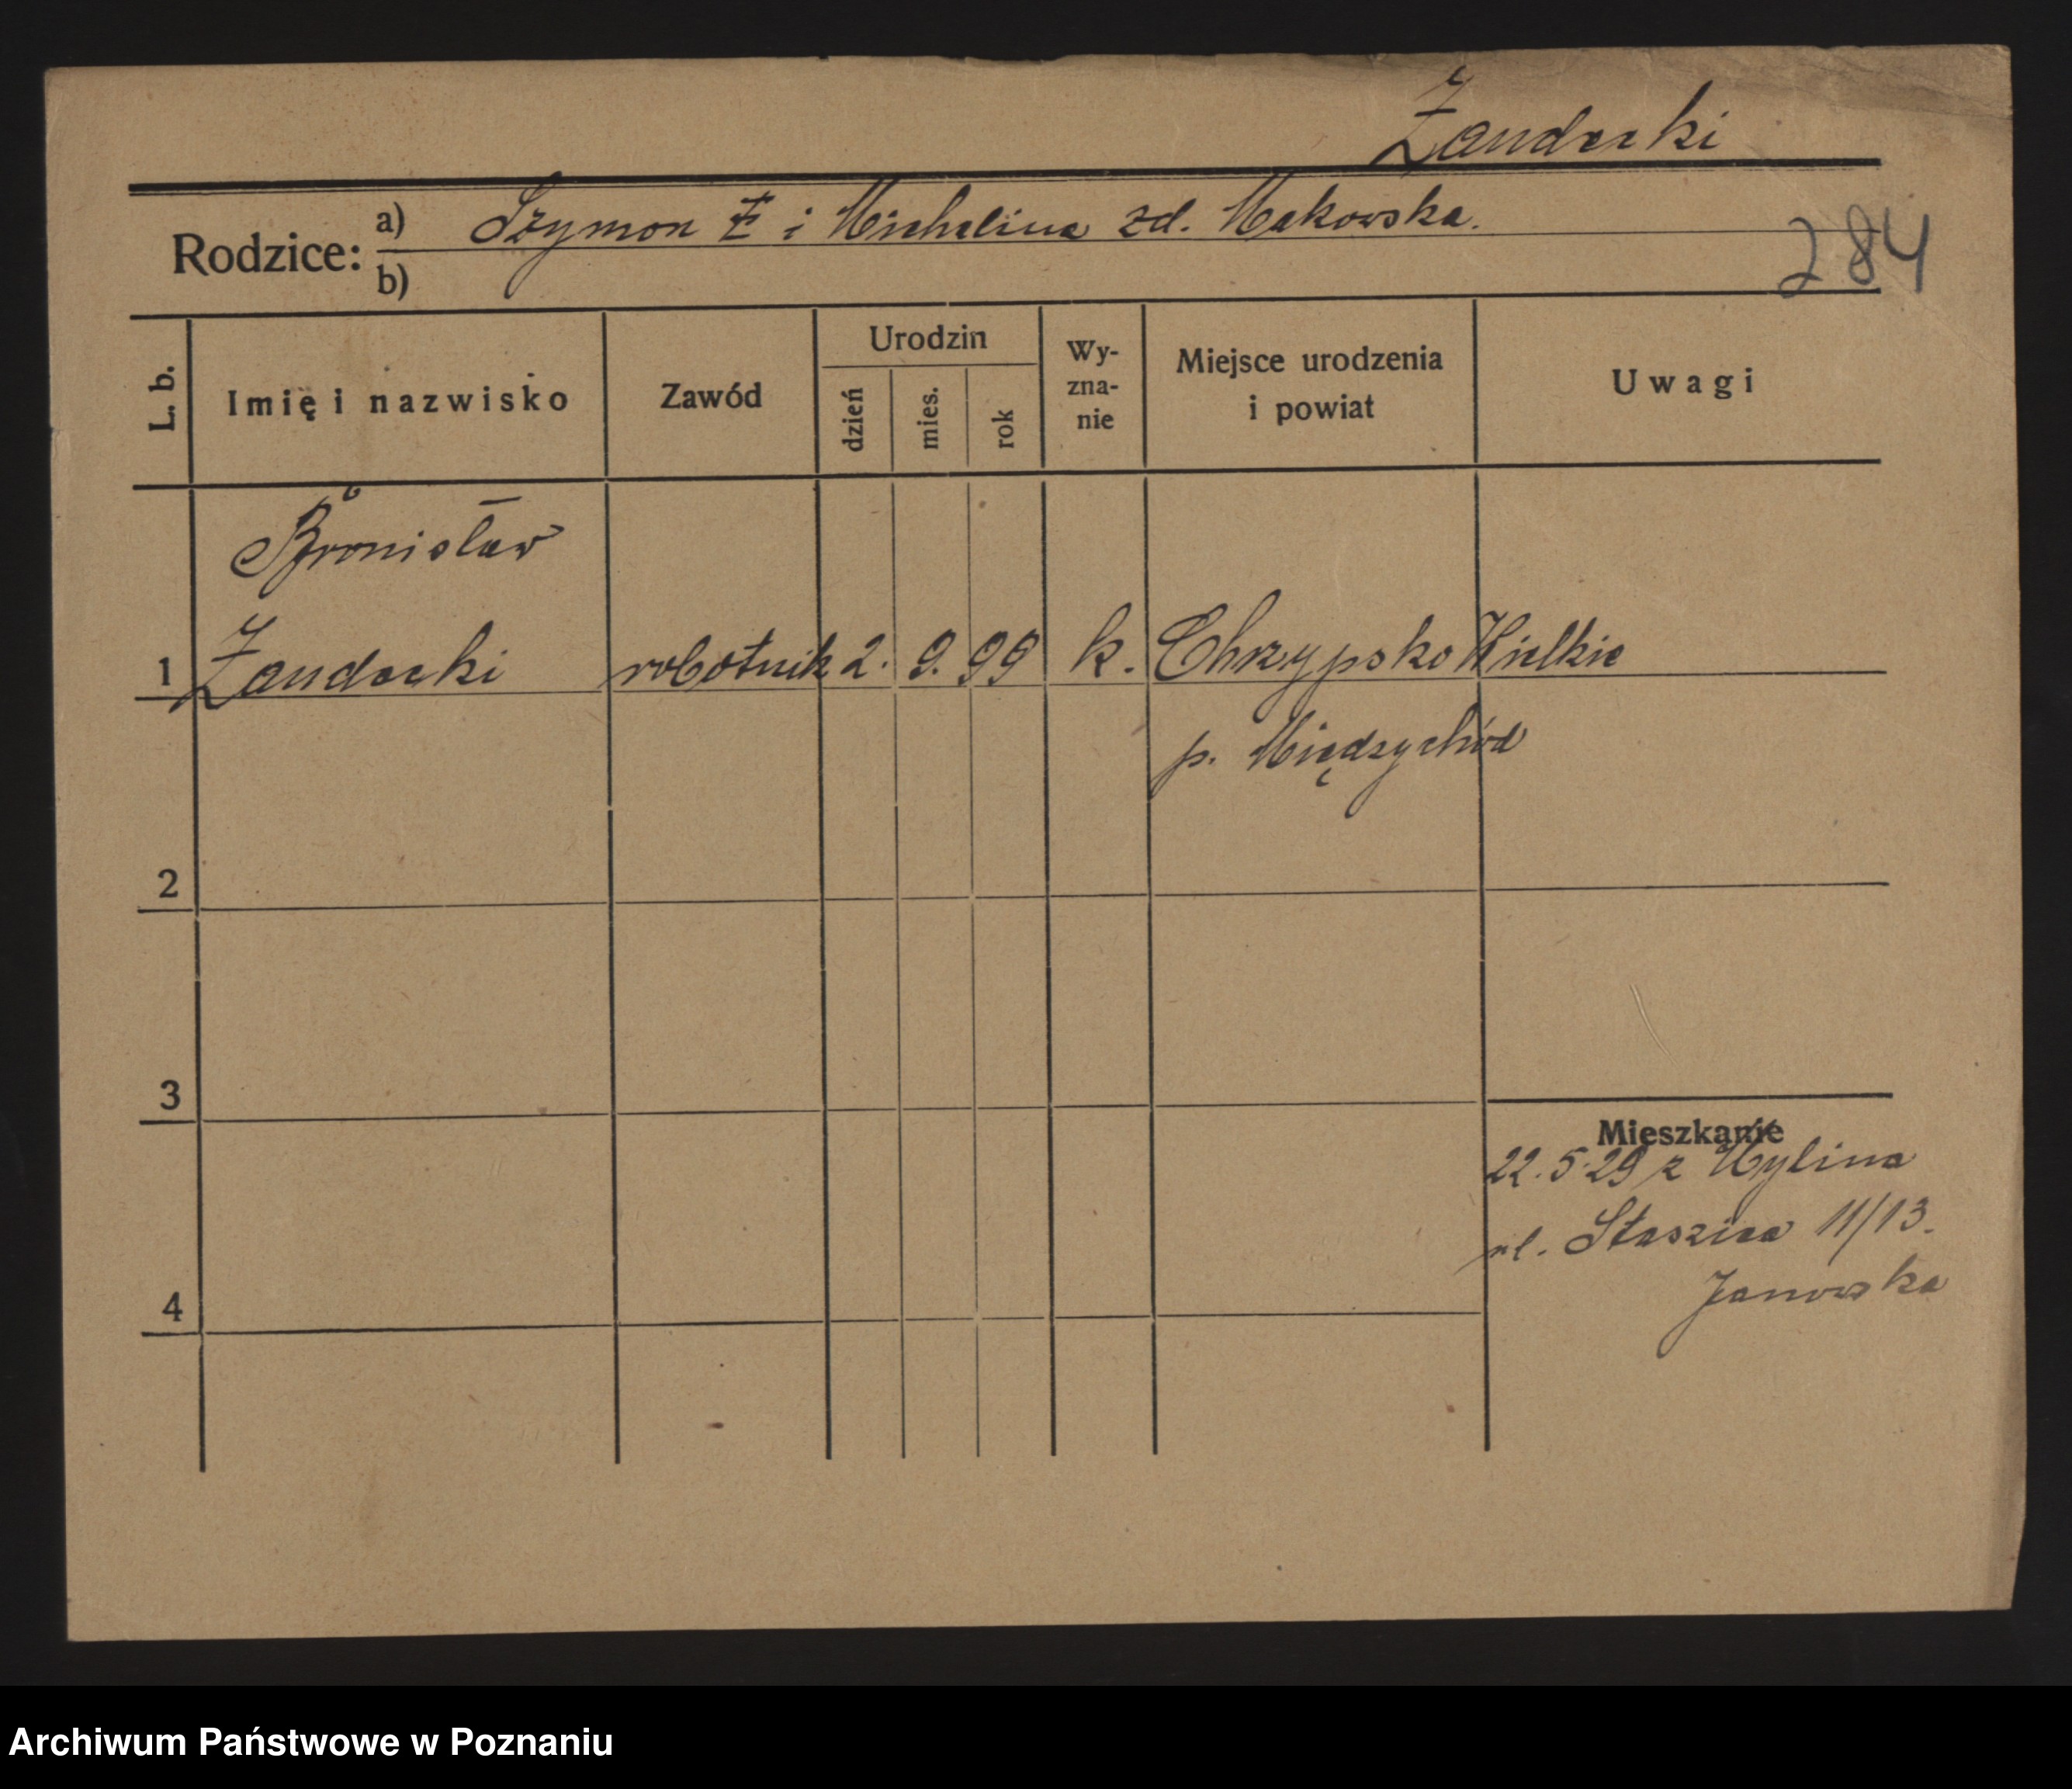 Żandecki
Rodzice: a) Szymon Ż i Michalina zd. Makowska.
b)
284
L. b.
Imię i nazwisko
Zawód
Urodzin
dzień
mies.
rok
Wy-
zna-
nie
Miejsce urodzenia
i powiat
Uwagi
Bronisław
1 Żandecki robotnik 2. 9. 99 k. Chrzypsko Wielkie
p. Międzychód
2
3
Mieszkanie
22.5.29 z
ul. Staszica 11/13.
Janowska
4
Archiwum Państwowe w Poznaniu